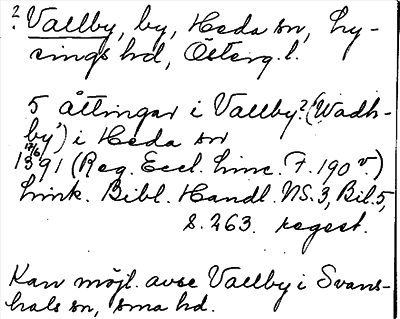 ? Vallby, by, Heda sn, Ly-
sings hd, Österg. l.
5 åttingar i Vallby? (Wadh-
by') i Heda sn
17/6
1391 (Reg. Eccl. Linc. F. 190 v.)
Link. Bibl. Handl. NS. 3, Bil. 5,
S. 263. regest.
Kan möjl. avse Vallby i Svans-
hals sn, sma hd.